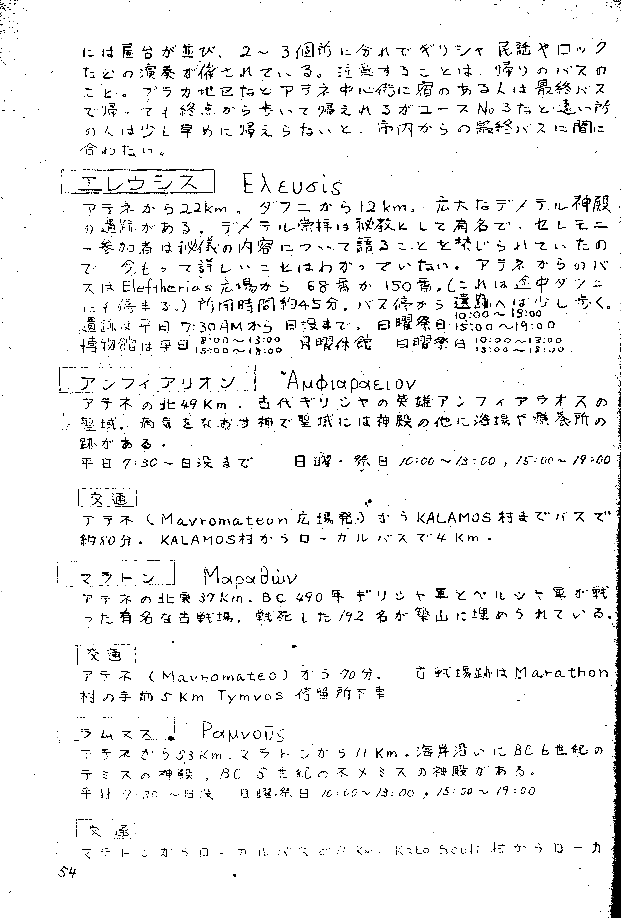 には屋台が並び、2～3個所に分れてギリシャ民謡やロック
などの演奏が催されている。注意することは、帰りのバスの
こと。プラカ地区などアテネ中心街に宿のある人は最終バス
で帰っても終点から歩いて帰えれるがユースNo3など遠い所
の人は少し早めに帰えらないと、市内からの最終バスに間に
合わない。
エレウシス Ελευσίς
アテネから22km。ダフニから12km。広大なデメテル神殿
の遺跡がある。デメテル崇拝は秘教として有名で、セレモニ
ー参加者は秘儀の内容について語ることを禁じられていたの
で、今もって詳しいことはわかっていない。アテネからのバ
スはEleftherias広場から 68番か150番。(これは途中ダフニ
にも停まる。)所用時間約45分。バス停から遺跡へは少し歩く。
遺跡は平日 7:30AMから日没まで。日曜祭日 10:00～13:00 15:00～19:00
博物館は平日 8:00～13:00 15:00～18:00 月曜休館 日曜祭日 10:00～13:00 15:00～18:00
アンフィアリオン Ἀμφιαραειον
アテネの北49Km。古代ギリシャの英雄アンフィアラオスの
聖域。病気をなおす神で聖域には神殿の他に浴場や療養所の
跡がある。
平日 7:30～日没まで 日曜・祭日 10:00～13:00, 15:00～19:00
交通
アテネ (Mavromateon 広場発)からKALAMOS村までバスで
約80分。KALAMOS村からローカルバスで4Km.
マラトン Μαραθών
アテネの北東37Km. BC 490年ギリシャ軍とペルシャ軍が戦
った有名な古戦場。戦死した192名が築山に埋められている。
交通
アテネ (Mavromateo)から70分. 古戦場跡はMarathon
村の手前5Km Tymvos 停留所下車
ラムヌス Ραμνοῦς
アテネから53Km. マラトンから11Km. 海岸沿いにBC6世紀の
テミスの神殿, BC 5世紀のネメミスの神殿がある。
平日 7:30～日没 日曜・祭日 10:00～13:00, 15:00～19:00
交通
マラトンからローカルバスで Km. Kato Souli 村からローカ
54